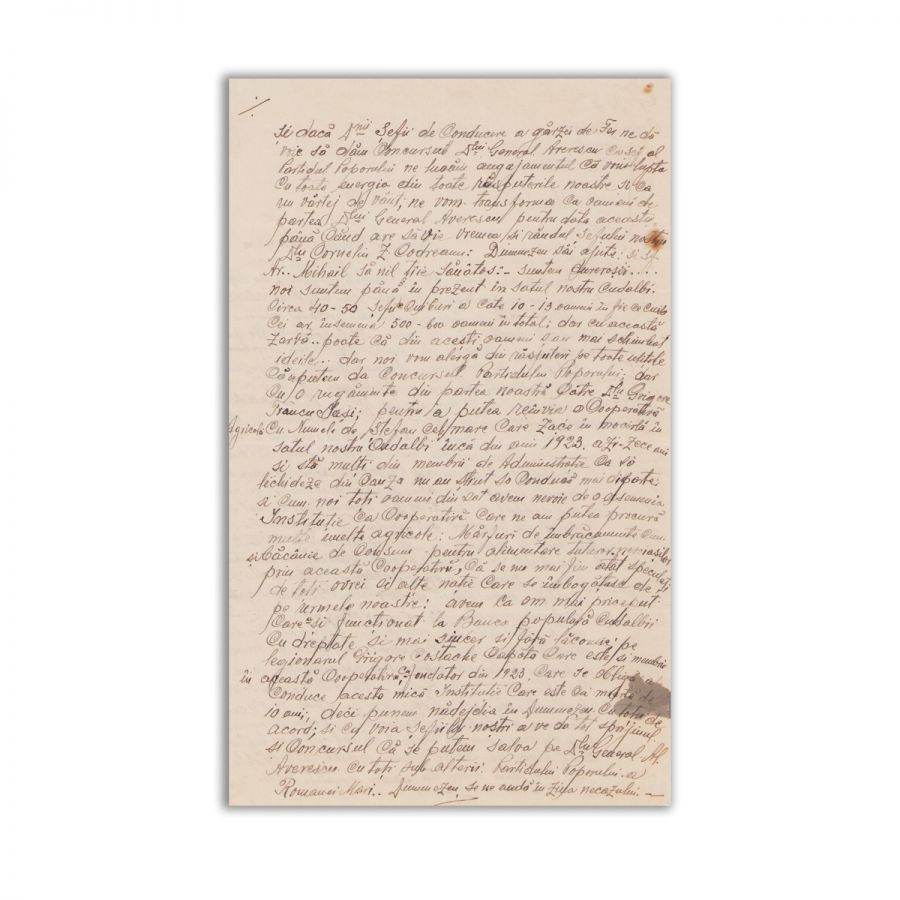 și dacă Dnii Șefii de Conducere a gărzei de Fer ne dă
voie să dăm Concursul Dlui General Averescu Ca șef al
Partidul Poporului ne luăm angajamentul Că vom lupta
Cu toată energia din toate răsputerile noastre și Ca
un vârtej de vânt, ne vom transforma Ca oameni de
partea Dlui General Averescu pentru data aceasta
până Când are să vie vremea și rândul șefului nostru
Dlu Corneliu Z. Codreanu: Dumnezeu săi ajute: și sf.
Ar. Mihail să nil ție Sănătos:- suntem durerosii....
noi suntem până în prezent în satul nostru Cudalbi.
Circa 40-50 șefi Cuiburi a Câte 10-13 oameni în fie ce Cuib
Cei ar însemna 500-600 oameni în total; dar cu această
zarvă.. poate Că din acești oameni sau mai schimbat
ideile.. dar noi vom alerga din răsputeri pe toate
Căi putem da Concursul Partidului Poporului; dar
Cu O rugăminte din partea noastră Către Dlu Grigore
Trancu Iași; pentru a putea reînvia o Cooperativă
Agricolă Cu Numele de Ștefan Cel mare Care Zace în moarte în
satul nostru Cudalbi încă din anii 1923. azi zece ani
și stă mulți din membrii de Administrație Ca să
lichideze din Cauza nu au știut so Conducă mai departe
și Cum noi toți oameni din sat avem nevoie de o asemenea
Instituție Ca Cooperativă Care ne am putea procură
multe unelte agricole; Mărfuri de îmbrăcaminte
și băcănie de Consum pentru alimentare
prin această Cooperativă, Că să nu mai fim atât speculați
de toți ovrei și alte nație Care se îmbogățăsc de
pe urmele noastre: avem Ca om mai priceput
Care și funcționat la Banca populară Cudalbii
Cu dreptate și mai sincer și fără lăcomie; pe
legionarul Grigore Costache Capată Care este și membru
în această Cooperativă Ca fondator din 1923. Care se obligă a
Conduce acesta mică Instituție Care este Ca moartă de
10 ani; deci punem nădejdia în Dumnezeu Ca toții de
acord; și Cu voia Șefului nostri a ve de tot sprijinul
și Concursul Că se putem salva pe Dlu General Al.
Averescu Cu toți sub alterii Partidului Poporului a
Romaniei Mari.. Dumnezeu, se ne audă în ziua necazului. —